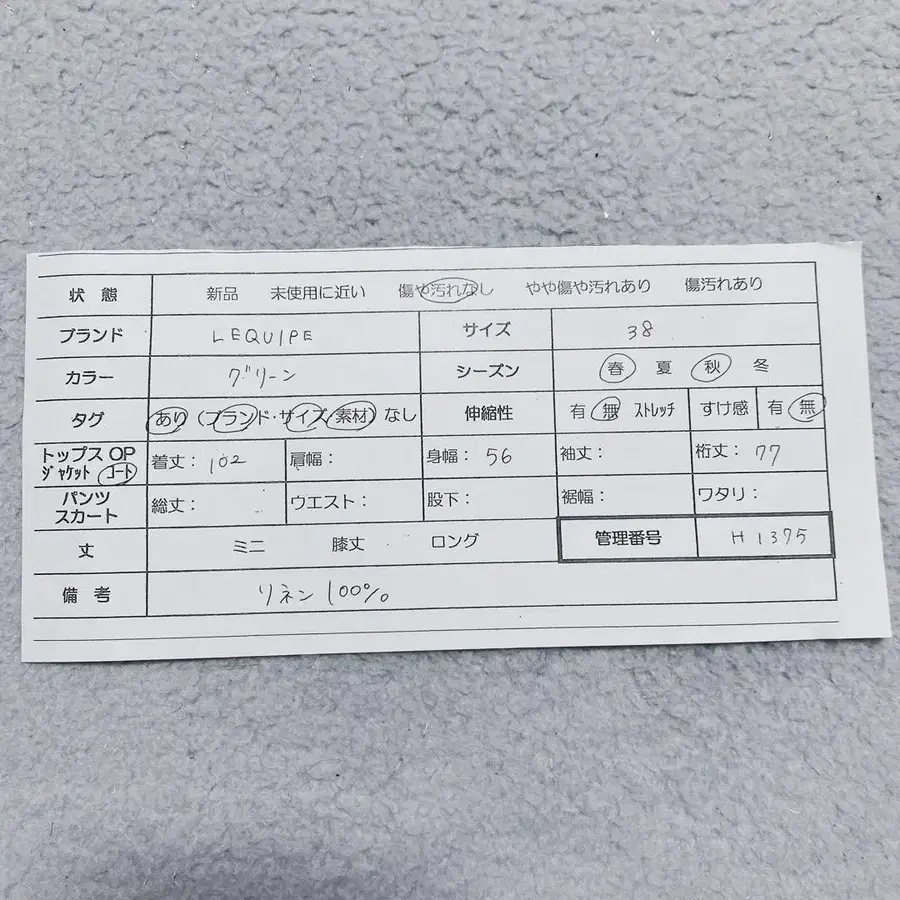 状態 新品 未使用に近い 傷や汚れなし やや傷や汚れあり 傷汚れあり
ブランド LEQUIPE サイズ 38
カラー グリーン シーズン 春 夏 秋 冬
タグ あり (ブランド・サイズ・素材) なし 伸縮性 有 無 ストレッチ すけ感 有 無
トップス OP
ジャケット コート 着丈: 102 肩幅: 身幅: 56 袖丈: 裄丈: 77
パンツ
スカート 総丈: ウエスト: 股下: 裾幅: ワタリ:
丈 ミニ 膝丈 ロング 管理番号 H1375
備考 リネン 100%